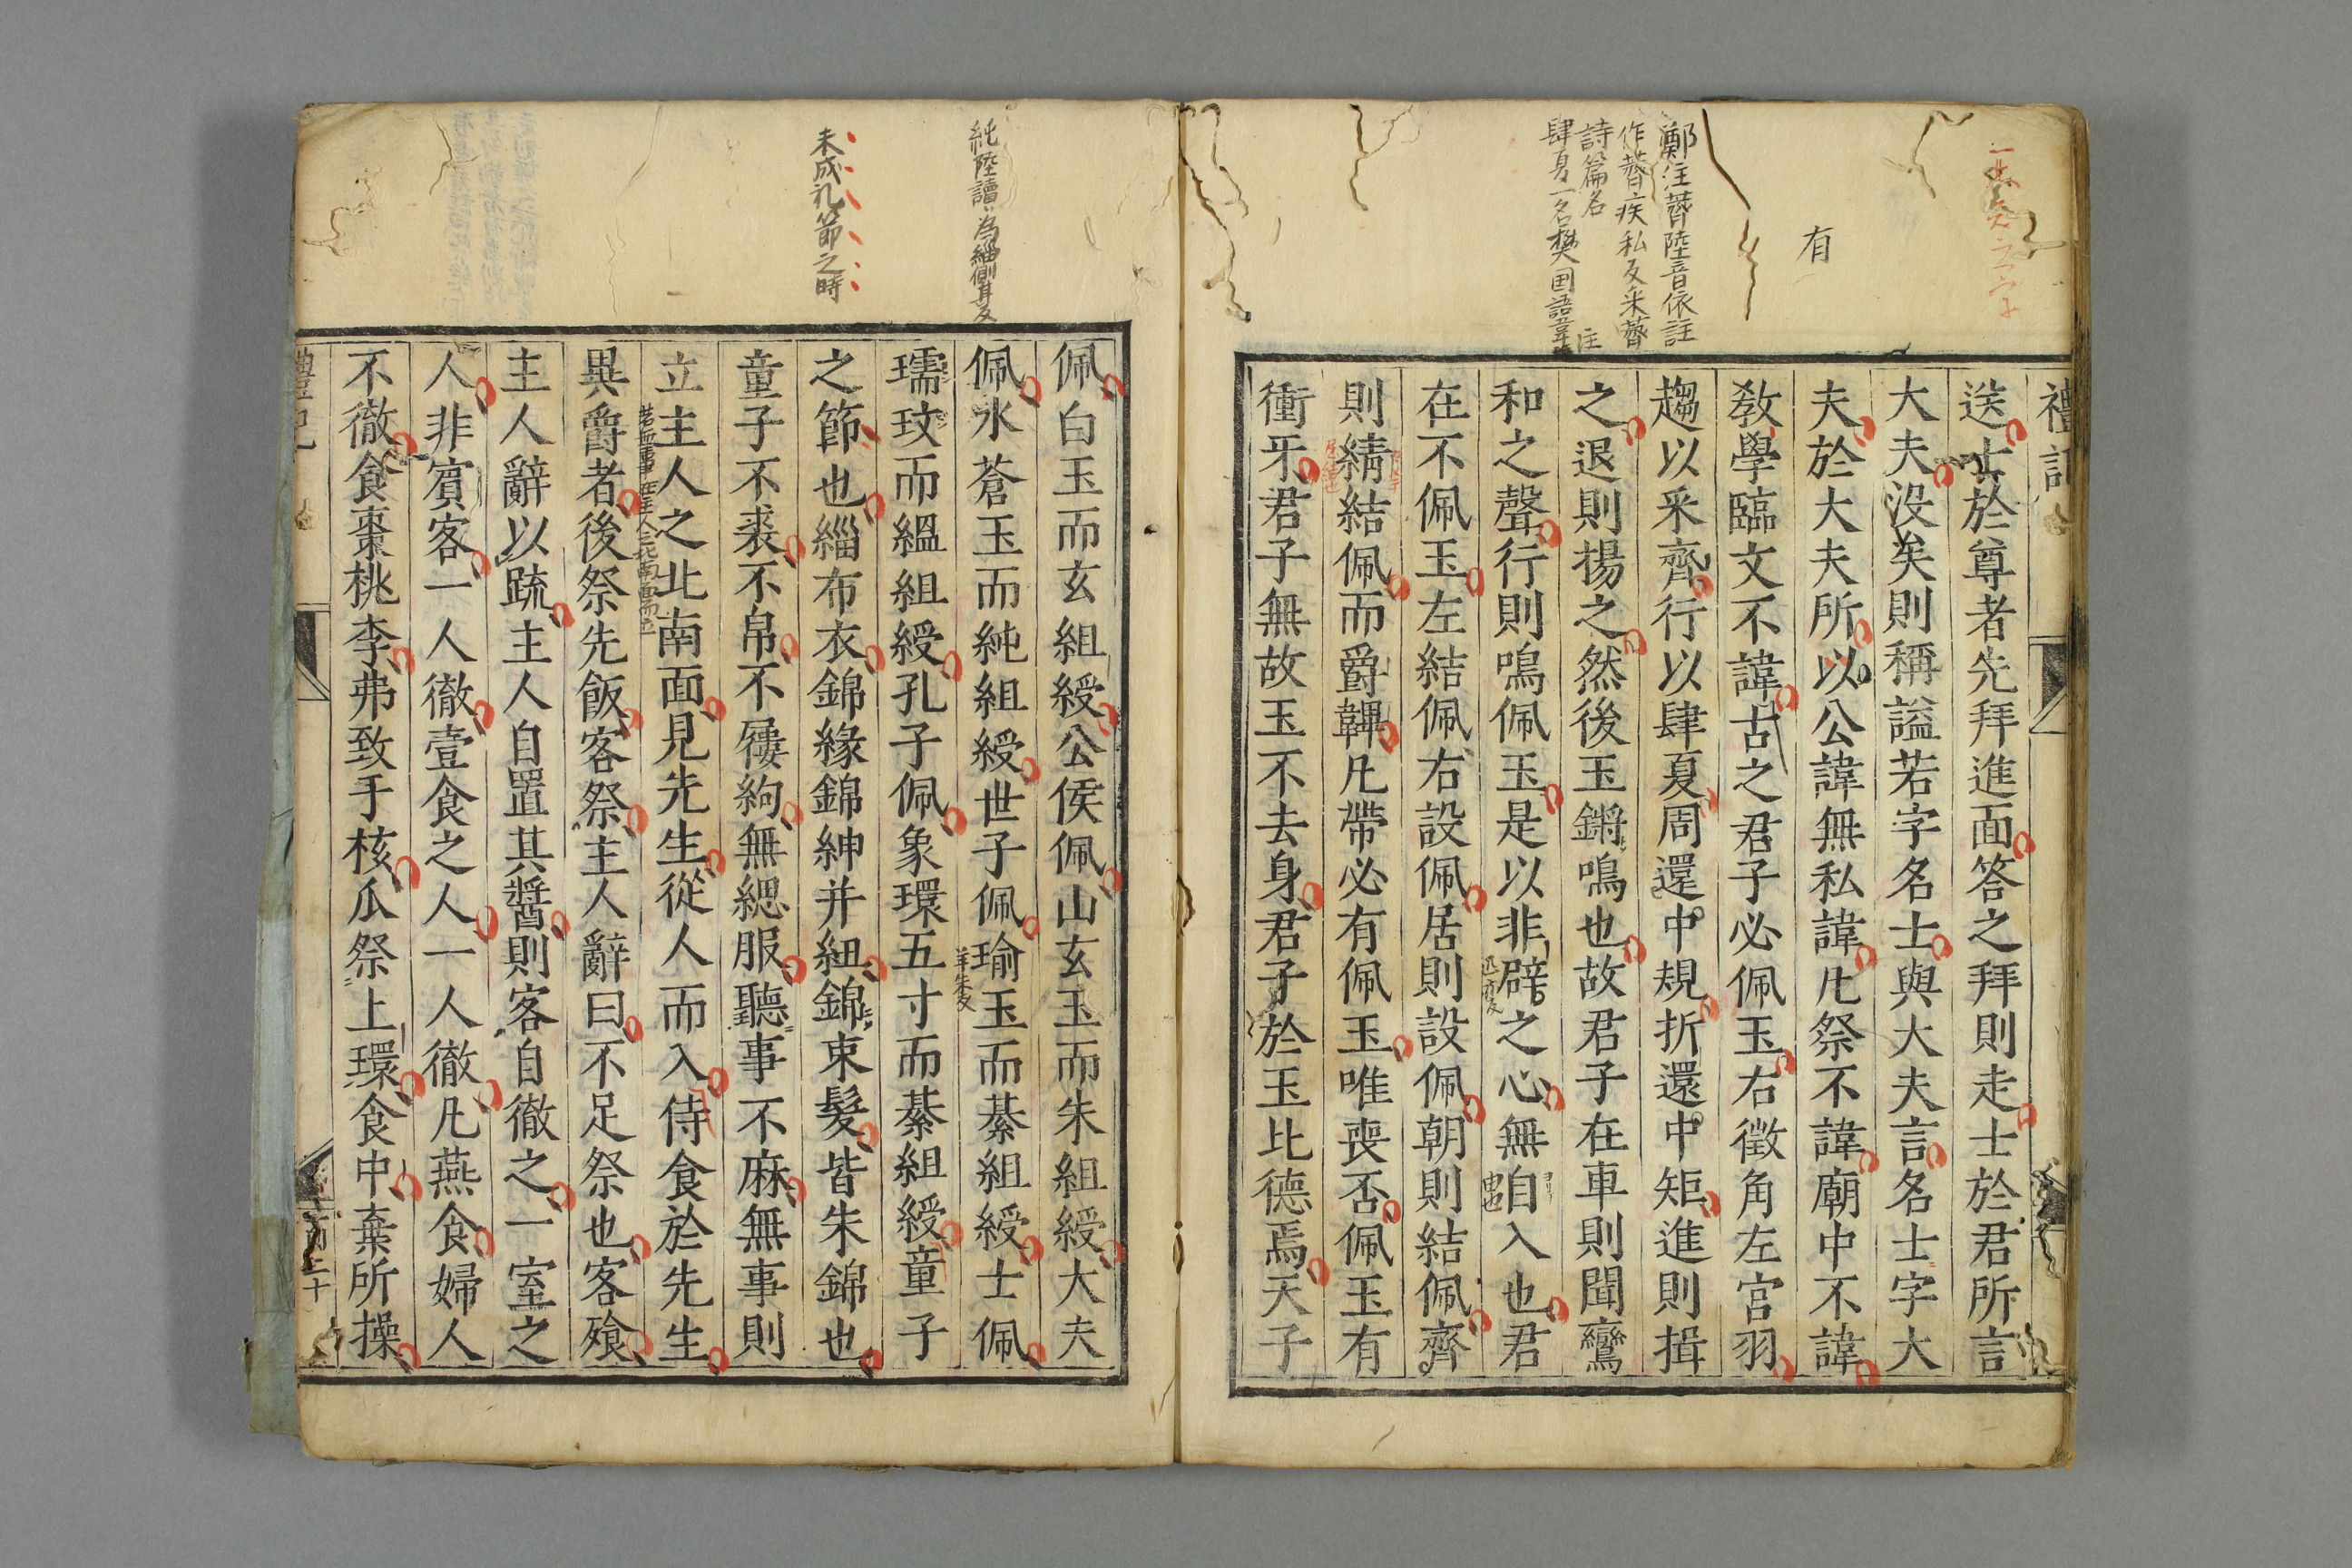 有
鄭注薺陸音依註
作薺疾私反采薺
詩篇名
肆夏一名樊国語韋昭注
禮記
送士於尊者先拜進面答之拜則走士於君所言
大夫没矣則稱謚若字名士與大夫言名士字大
夫於大夫所以公諱無私諱凡祭不諱廟中不諱
敎學臨文不諱古之君子必佩玉右徵角左宮羽
趨以采齊行以肆夏周還中規折還中矩進則揖
之退則揚之然後玉鏘鳴也故君子在車則聞鸞
和之聲行則鳴佩玉是以非辟之心無自入也君
在不佩玉左結佩右設佩居則設佩朝則結佩齊
則綪結佩而爵韠凡帶必有佩玉唯喪否佩玉有
衝牙君子無故玉不去身君子於玉比德焉天子
純陸讀為緇側其反
未成礼節之時
佩白玉而玄組綬公侯佩山玄玉而朱組綬大夫
佩水蒼玉而純組綬世子佩瑜玉而綦組綬士佩
瓀玟而縕組綬孔子佩象環五寸而綦組綬童子
之節也緇布衣錦緣錦紳并紐錦束髮皆朱錦也
童子不裘不帛不屨絇無緦服聽事不麻無事則
立主人之北南面見先生從人而入侍食於先生
若無事立主人之北南面而立
異爵者後祭先飯客祭主人辭曰不足祭也客飱
主人辭以䟽主人自置其醬則客自徹之一室之
人非賓客一人徹壹食之人一人徹凡燕食婦人
不徹食棗桃李弗致于核瓜祭上環食中棄所操
禮記